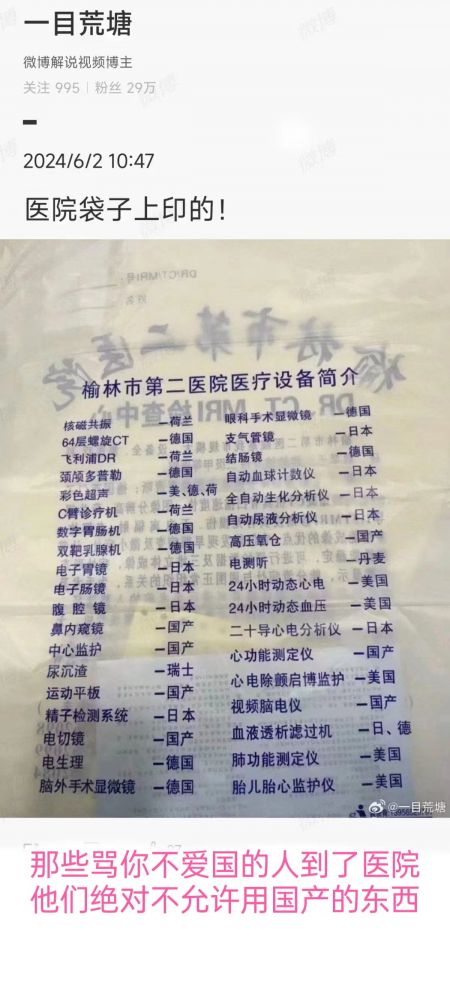 一目荒塘
微博解说视频博主
关注 995 | 粉丝 29万
2024/6/2 10:47
医院袋子上印的！
DR/CT/MRI号
榆林市第二医院
DR CT MRI检查中心
榆林市第二医院医疗设备简介
核磁共振 —荷兰
64层螺旋CT —德国
飞利浦DR —荷兰
颈颅多普勒 —德国
彩色超声 —美、德、荷
C臂诊疗机 —荷兰
数字胃肠机 —德国
双靶乳腺机 —德国
电子胃镜 —日本
电子肠镜 —日本
腹腔镜 —日本
鼻内窥镜 —国产
中心监护 —国产
尿沉渣 —瑞士
运动平板 —国产
精子检测系统 —日本
电切镜 —国产
电生理 —德国
脑外手术显微镜 —德国
眼科手术显微镜 —德国
支气管镜 —日本
结肠镜 —德国
自动血球计数仪 —日本
全自动生化分析仪 —日本
自动尿液分析仪 —日本
高压氧仓 —国产
电测听 —丹麦
24小时动态心电 —美国
24小时动态血压 —美国
二十导心电分析仪 —日本
心功能测定仪 —国产
心电除颤启博监护 —美国
视频脑电仪 —国产
血液透析滤过机 —日、德
肺功能测定仪 —美国
胎儿胎心监护仪 —美国
@一目荒塘
那些骂你不爱国的人到了医院
他们绝对不允许用国产的东西